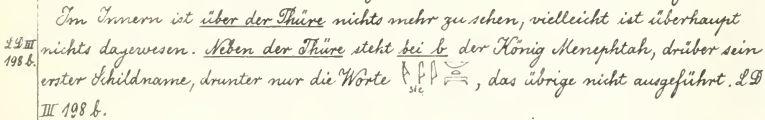 Im Innern ist über der Thüre nichts mehr zu sehen, vielleicht ist überhaupt
LD III
198 b.
nichts dagewesen. Neben der Thüre steht bei b der König Menephtah, drüber sein
erster Schildname, drunter nur die Worte sic, das übrige nicht ausgeführt. LD
III 198 b.